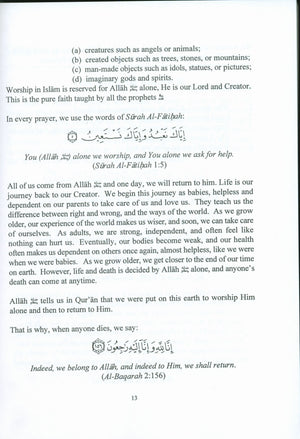 (a) creatures such as angels or animals;
(b) created objects such as trees, stones, or mountains;
(c) man-made objects such as idols, statues, or pictures;
(d) imaginary gods and spirits.
Worship in Islām is reserved for Allāh ﷻ alone, He is our Lord and Creator.
This is the pure faith taught by all the prophets ﷺ
In every prayer, we use the words of Sūrah Al-Fātiḥah:
إِيَّاكَ نَعْبُدُ وَإِيَّاكَ نَسْتَعِينُ ۝
You (Allāh ﷻ) alone we worship, and You alone we ask for help.
(Sūrah Al-Fātiḥah 1:5)
All of us come from Allāh ﷻ and one day, we will return to him. Life is our
journey back to our Creator. We begin this journey as babies, helpless and
dependent on our parents to take care of us and love us. They teach us the
difference between right and wrong, and the ways of the world. As we grow
older, our experience of the world makes us wiser, and soon, we can take care
of ourselves. As adults, we are strong, independent, and often feel like
nothing can hurt us. Eventually, our bodies become weak, and our health
often makes us dependent on others once again, almost helpless, like we were
when we were babies. As we grow older, we get closer to the end of our time
on earth. However, life and death is decided by Allāh ﷻ alone, and anyone's
death can come at anytime.
Allāh ﷻ tells us in Qur'ān that we were put on this earth to worship Him
alone and then to return to Him.
That is why, when anyone dies, we say:
إِنَّا لِلَّهِ وَإِنَّا إِلَيْهِ رَاجِعُونَ ۝
Indeed, we belong to Allāh, and indeed to Him, we shall return.
(Al-Baqarah 2:156)
13